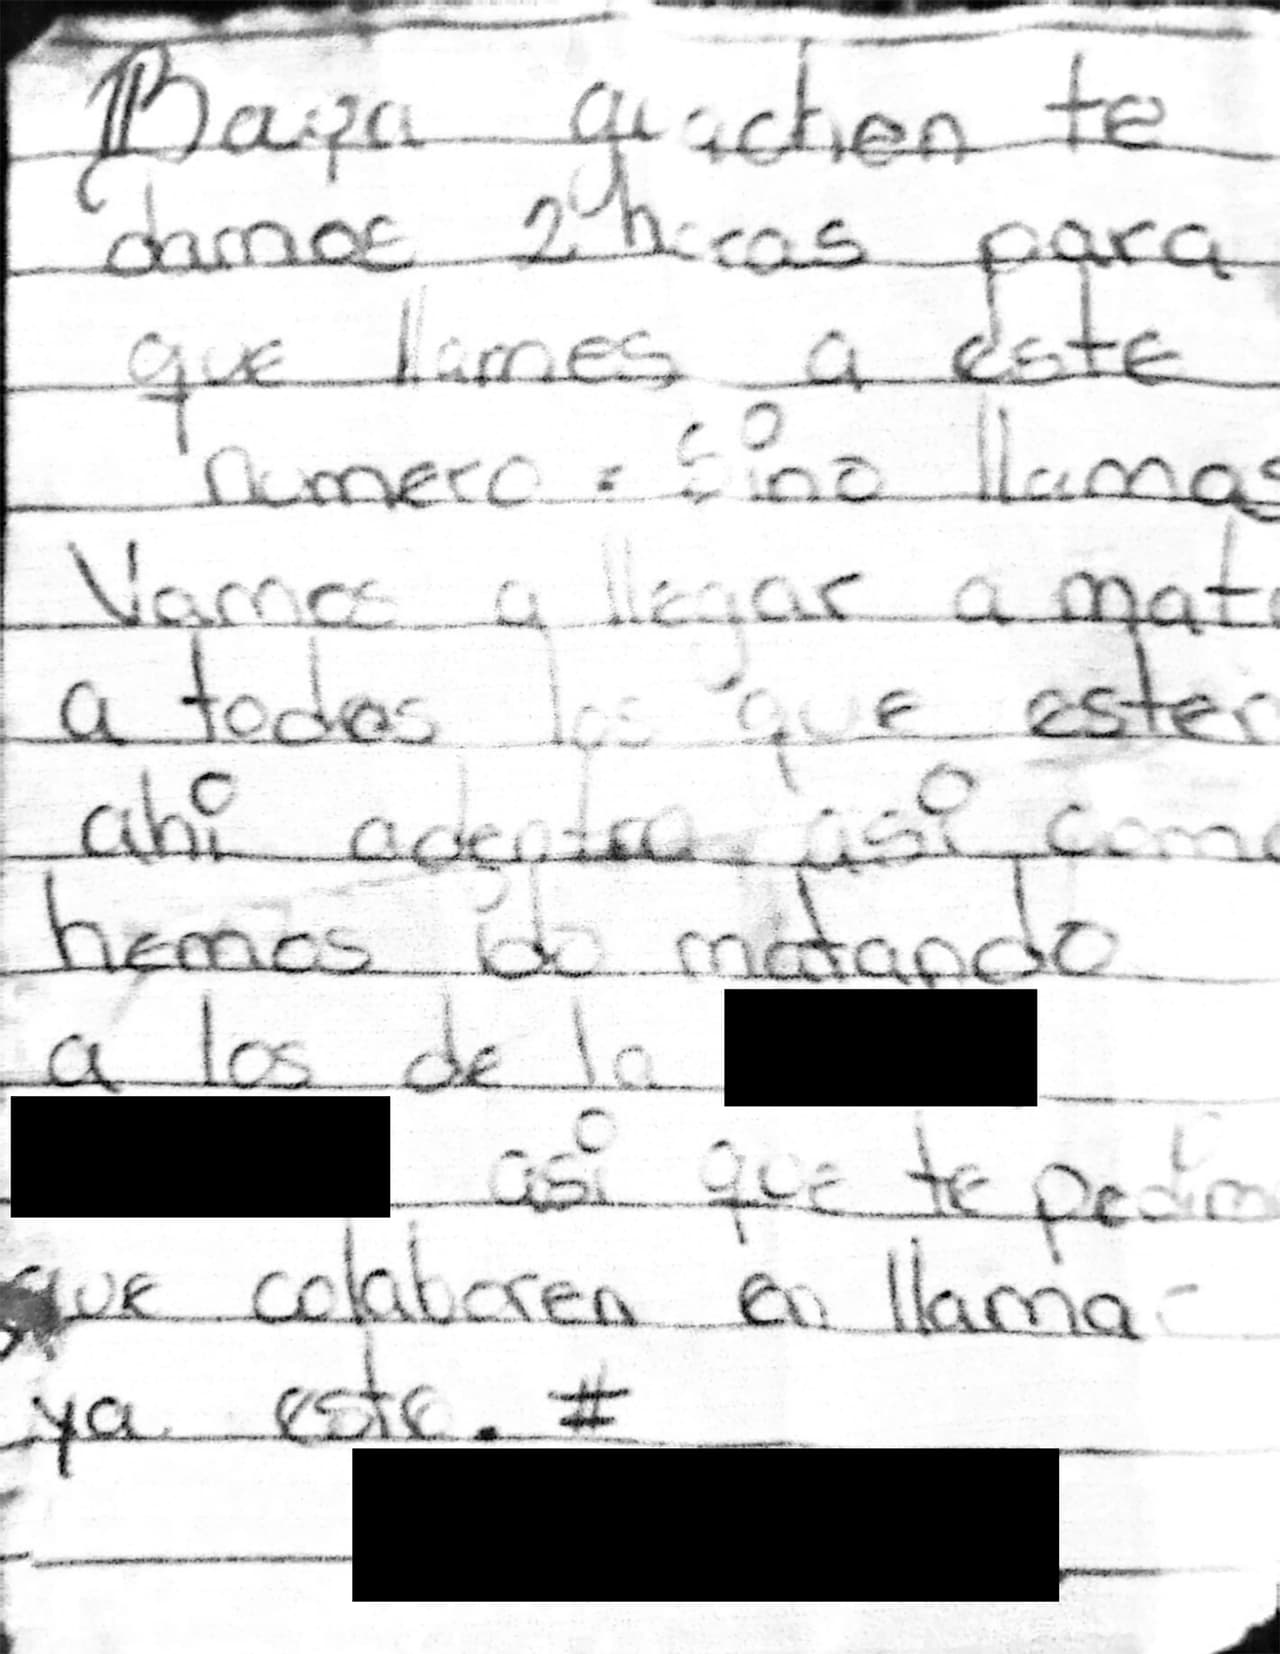 Baya guachen te
damos 2 horas para
que llames a este
numero = Sino llamas
Vamos a llegar a mata
a todos los que esten
ahi adentro asi como
hemos ido matando
a los de la
asi que te pedim
que colaboren en llama
ya este. #